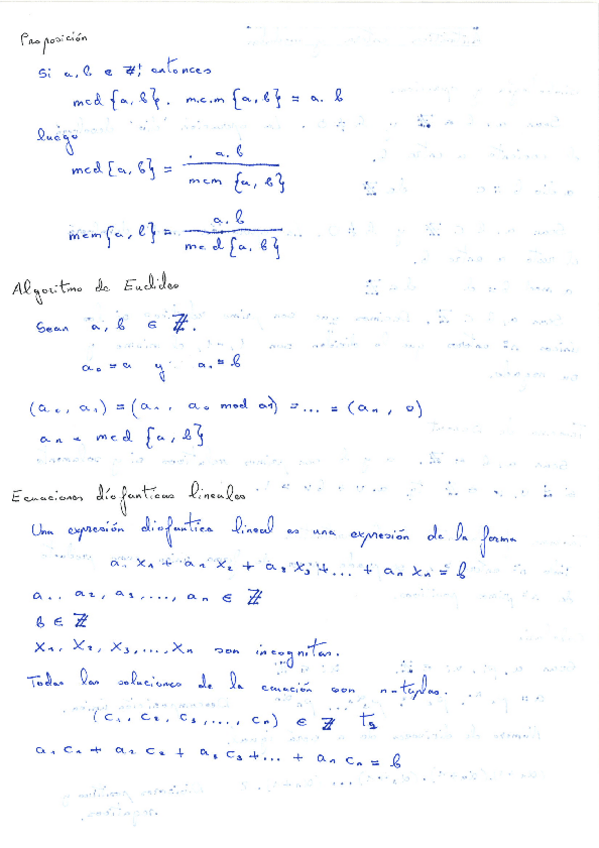 Proposición
Si a, b ∈ ℤ! entonces
mcd {a, b} . m.c.m {a, b} = a. b
luego
mcd {a, b} = a. b / mcm {a, b}
mcm {a, b} = a. b / mcd {a, b}
Algoritmo de Euclides
Sean a, b ∈ ℤ.
a₀ = a y a₁ = b
(a₀, a₁) = (a₁, a₀ mod a₁) = ... = (aₙ, 0)
aₙ = mcd {a, b}
Ecuaciones diofanticas lineales
Una expresión diofantica lineal es una expresión de la forma
a₁ x₁ + a₂ x₂ + a₃ x₃ + ... + aₙ xₙ = b
a₁, a₂, a₃, ..., aₙ ∈ ℤ
b ∈ ℤ
x₁, x₂, x₃, ..., xₙ son incognitas.
Todas las soluciones de la ecuación son n-tuplas.
(c₁, c₂, c₃, ..., cₙ) ∈ ℤ tq
a₁ c₁ + a₂ c₂ + a₃ c₃ + ... + aₙ cₙ = b